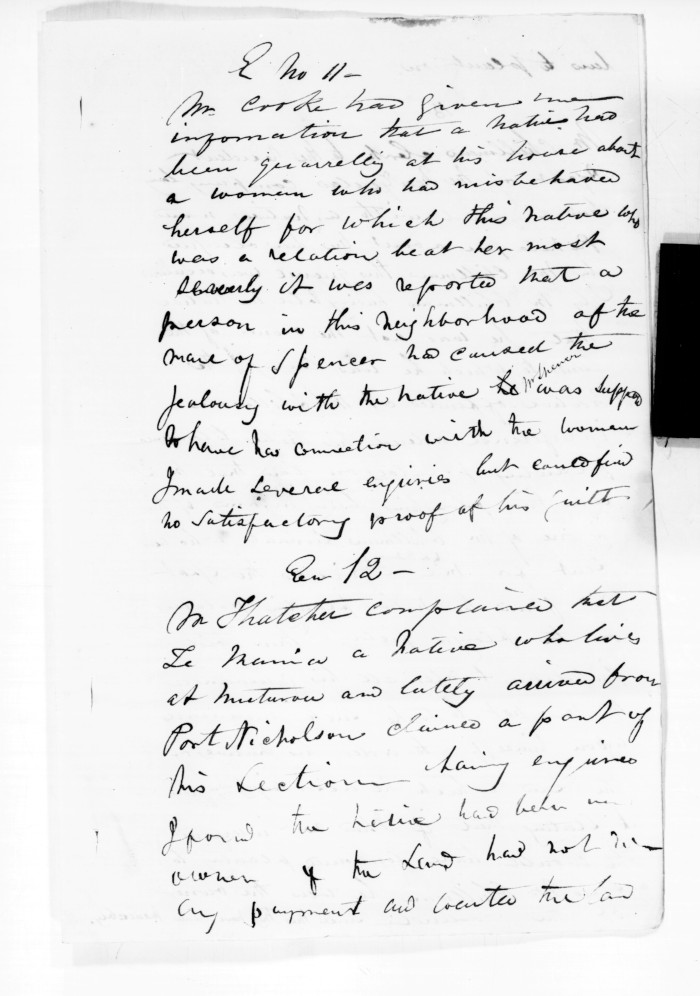 E No 11 -
Mr Cooke had given me
information that a native had
been quarrelling at his house about
a woman who had misbehaved
herself for which this native who
was a relation beat her most
severely it was reported that a
person in this neighborhood of the
name of Spencer had caused the
jealousy with the native Mr Spencer was supposed
to have had connection with the woman
I made several enquiries but could find
no satisfactory proof of his guilt
12 -
Mr Thatcher complained that
Te a native who lives
at and lately arrived from
Port Nicholson claimed a part of
his section having enquired
I found the native had been
owner of the Land had not
any payment and wanted the Land